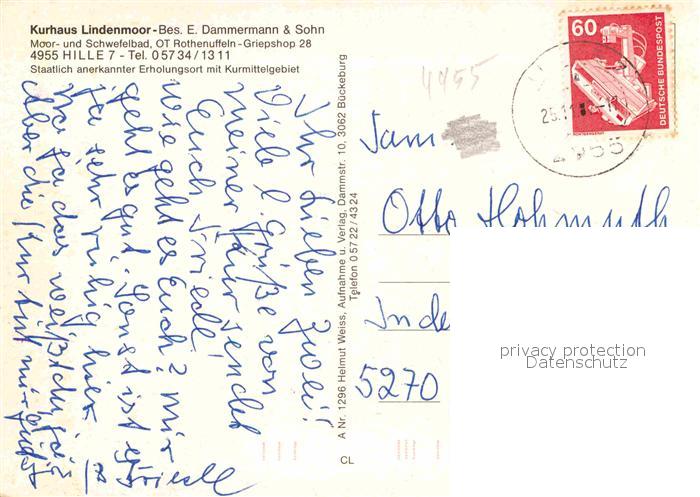 Kurhaus Lindenmoor - Bes. E. Dammermann & Sohn
Moor- und Schwefelbad, OT Rothenuffeln - Griepshop 28
4955 HILLE 7 - Tel. 0 57 34 / 13 11
Staatlich anerkannter Erholungsort mit Kurmittelgebiet
Ihr Lieben Zwei!!
Viele l. Grüße von
meiner Kur sendet
Euch Friedl,
wie geht es Euch? mir
geht es gut. Sonst ist es
ja sehr ruhig hier
na ja das weißt du ja
Aber die Kur tut mir gut
Friedl
A Nr. 1296 Helmut Weiss, Aufnahme u. Verlag, Dammstr. 10, 3062 Bückeburg
Telefon 0 57 22 / 43 24
CL
4955
60
DEUTSCHE BUNDESPOST
4955
Fam
Otto Hohmuth
Inde
5270
privacy protection
Datenschutz